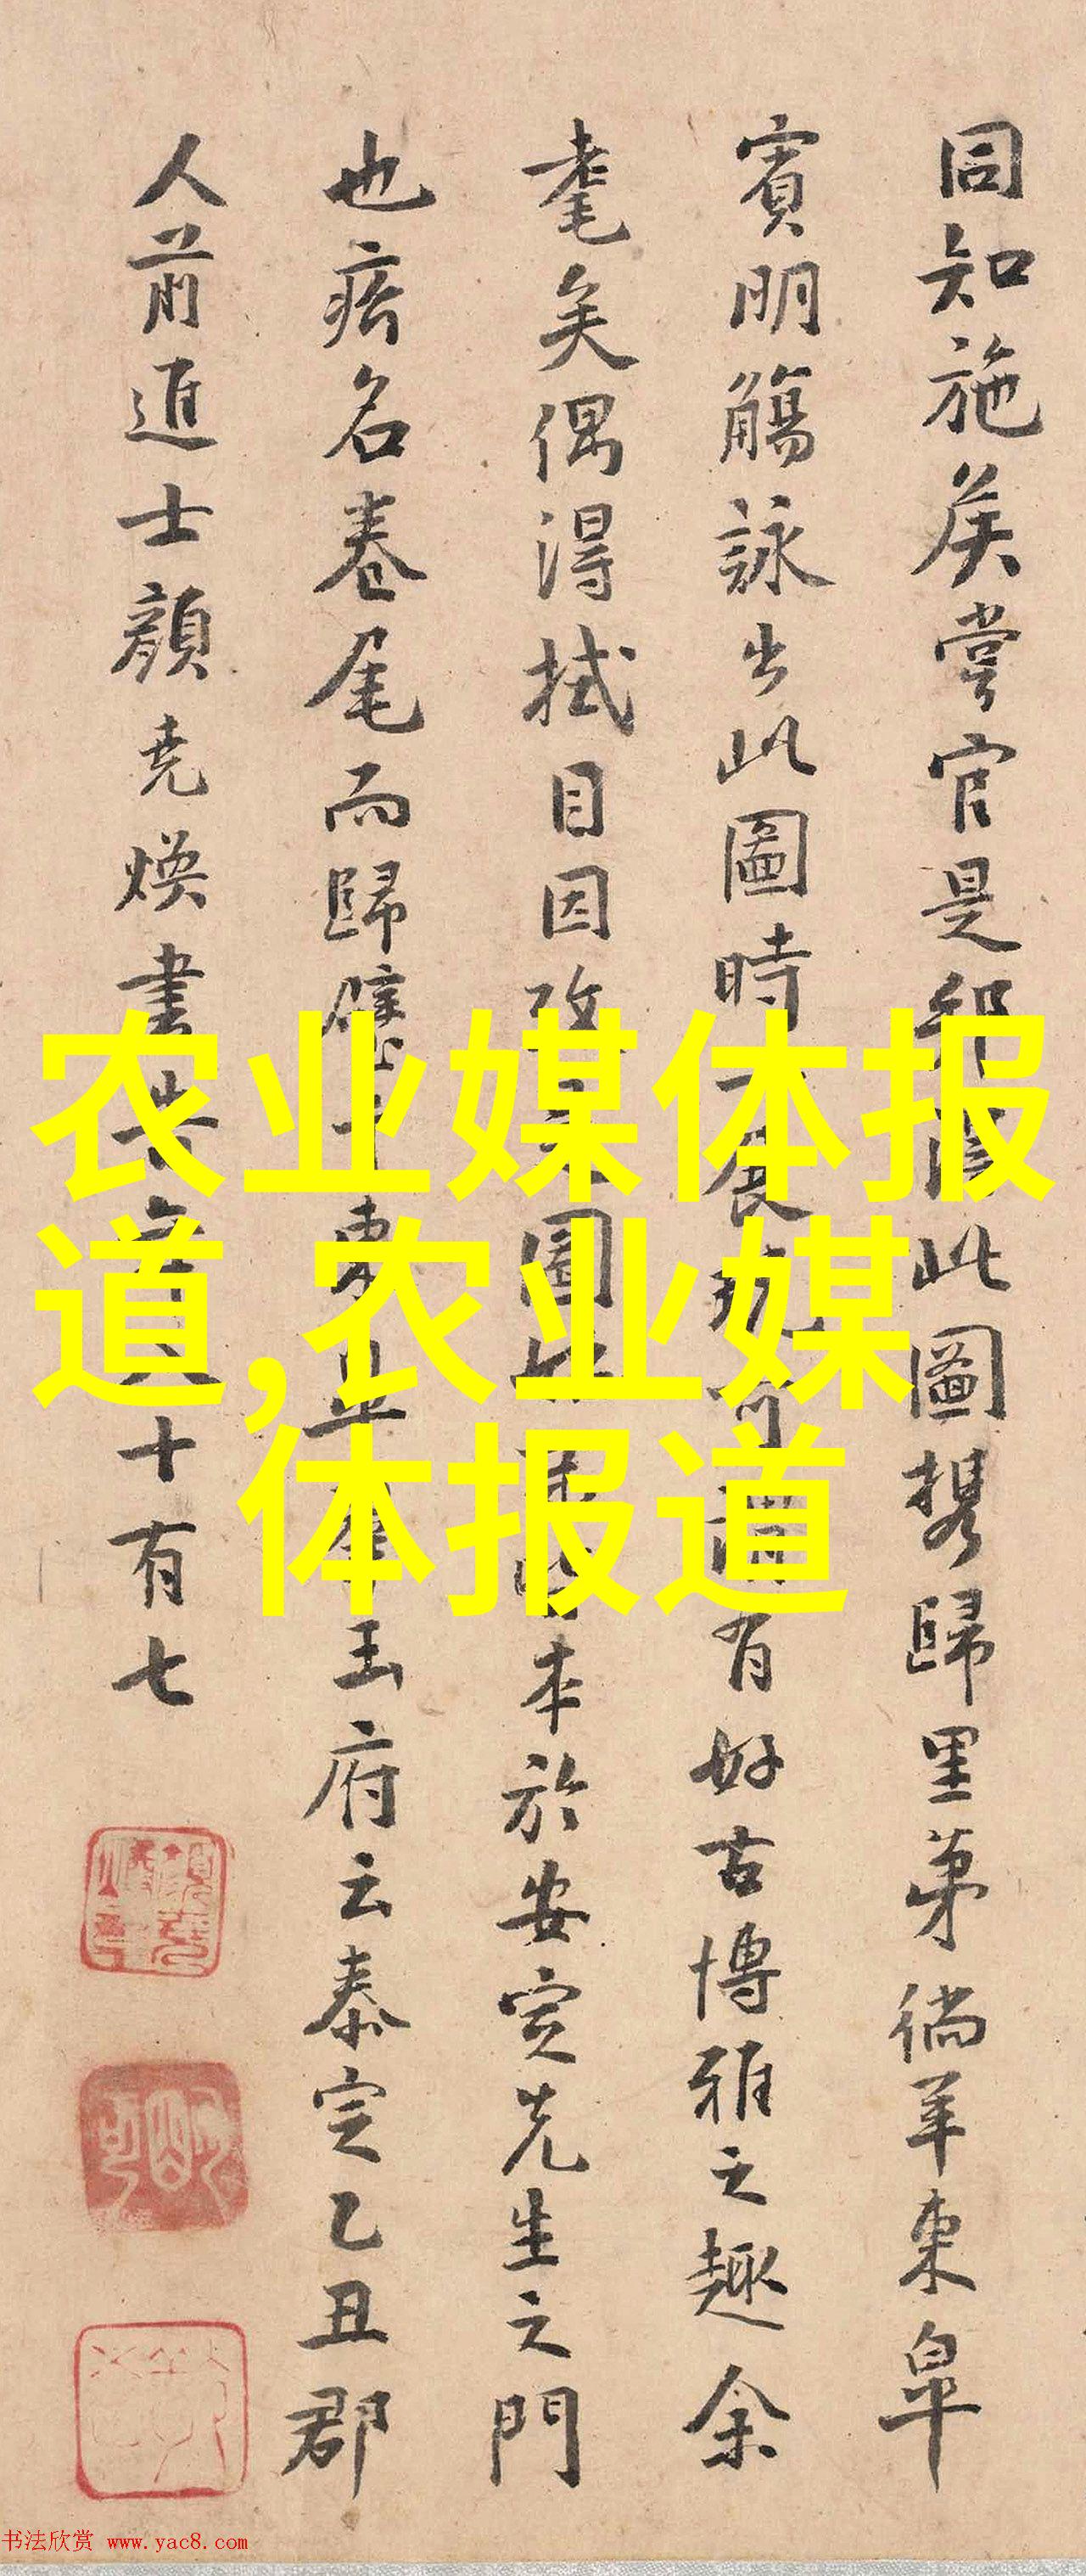 同知施侯嘗官是邦得此圖携歸里第徜羊東皐
賓明觴詠出此圖時一展玩可謂有好古博雅之趣余
耄矣偶得拭目因攷圖本於安定先生之門
也瘖名卷尾而歸璧玉府云泰定乙丑郡
人前進士顏堯煥書告年八十有七
农业媒体报
道,农业媒
体报道
书法欣赏 www.yac8.com